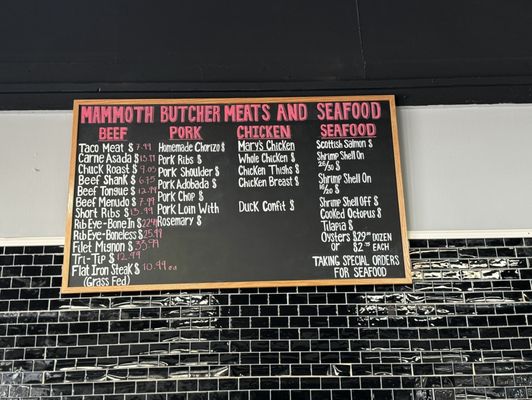 MAMMOTH BUTCHER MEATS AND SEAFOOD
BEEF
Taco Meat $ 7.99
Carne Asada $
Chuck Roast $
Beef Shank $
Beef Tongue $
Beef Menudo $ 7.99
Short Ribs $ 13.99
Rib Eye-Bone In $
Rib Eye-Boneless $ 25.99
Filet Mignon $
Tri-Tip $ 12.99
Flat Iron Steak $ 10.99 ea
(Grass Fed)
PORK
Homemade Chorizo $
Pork Ribs $
Pork Shoulder $
Pork Adobada $
Pork Chop $
Pork Loin With
Rosemary $
CHICKEN
Mary's Chicken
Whole Chicken $
Chicken Thighs $
Chicken Breast $
Duck Confit $
SEAFOOD
Scottish Salmon $
Shrimp Shell On
26/30 $
Shrimp Shell On
16/20 $
Shrimp Shell Off $
Cooked Octopus $
Tilapia $
Oysters $29.00 DOZEN
or $2.75 EACH
TAKING SPECIAL ORDERS
FOR SEAFOOD